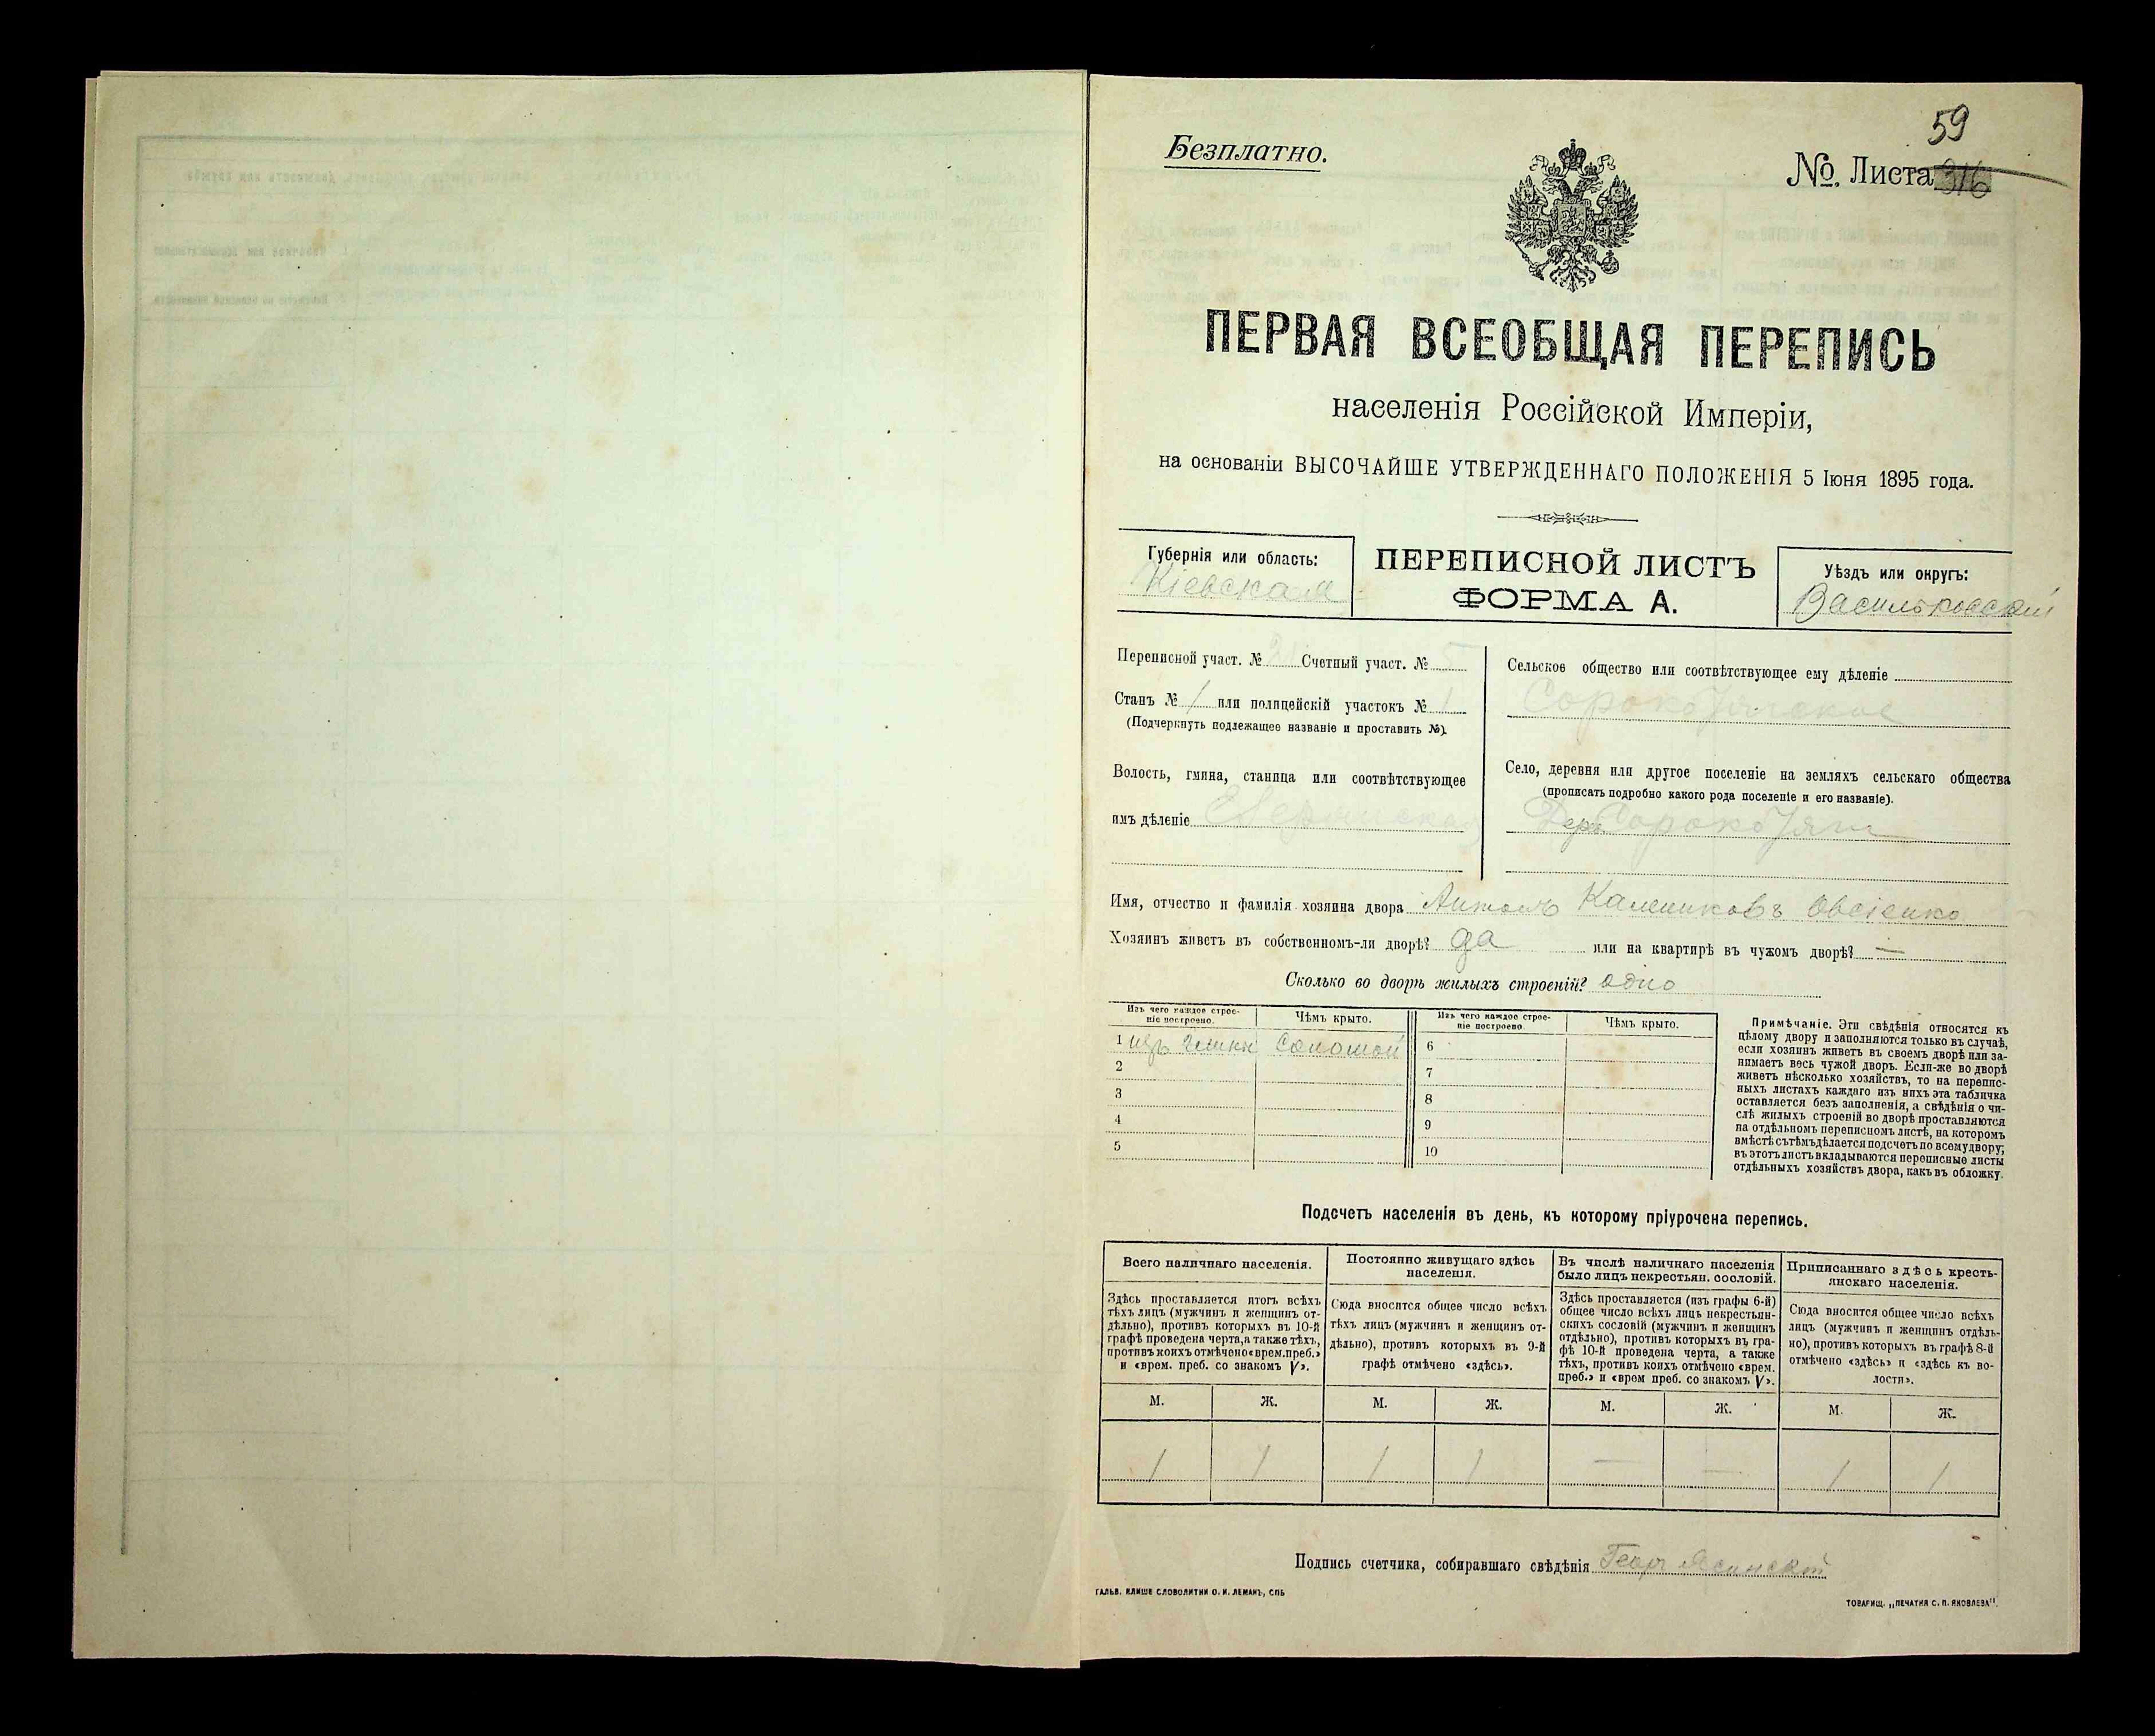 59
Безплатно.
№ Листа 316
ПЕРВАЯ ВСЕОБЩАЯ ПЕРЕПИСЬ
населенія Россійской Имперіи,
на основаніи ВЫСОЧАЙШЕ УТВЕРЖДЕННАГО ПОЛОЖЕНІЯ 5 Іюня 1895 года.
Губернія или область:
Кіевская
ПЕРЕПИСНОЙ ЛИСТЪ
ФОРМА А.
Уѣздъ или округъ:
Васильковскій
Переписной участ. № Счетный участ. № 5
Станъ № 1 или полицейскій участокъ № 1
(Подчеркнуть подлежащее названіе и проставить №).
Волость, гмина, станица или соотвѣтствующее
имъ дѣленіе
Сельское общество или соотвѣтствующее ему дѣленіе
Сорокотягское
Село, деревня или другое поселеніе на земляхъ сельскаго общества
(прописать подробно какого рода поселеніе и его названіе).
Дер. Сорокотяги
Имя, отчество и фамилія хозяина двора Антонъ Калениковъ Овсіенко
Хозяинъ живетъ въ собственномъ-ли дворѣ? да или на квартирѣ въ чужомъ дворѣ? —
Сколько во дворѣ жилыхъ строеній? одно
Изъ чего каждое строе-
ніе построено.
Чѣмъ крыто.
Изъ чего каждое строе-
ніе построено.
Чѣмъ крыто.
1 изъ глины соломой 6
2 7
3 8
4 9
5 10
Примѣчаніе. Эти свѣдѣнія относятся къ
цѣлому двору и заполняются только въ случаѣ,
если хозяинъ живетъ въ своемъ дворѣ или за-
нимаетъ весь чужой дворъ. Если-же во дворѣ
живетъ нѣсколько хозяйствъ, то на перепис-
ныхъ листахъ каждаго изъ нихъ эта табличка
оставляется безъ заполненія, а свѣдѣнія о чи-
слѣ жилыхъ строеній во дворѣ проставляются
на отдѣльномъ переписномъ листѣ, на которомъ
вмѣстѣ съ тѣмъ дѣлается подсчетъ по всему двору;
въ этотъ листъ вкладываются переписные листы
отдѣльныхъ хозяйствъ двора, какъ въ обложку.
Подсчетъ населенія въ день, къ которому пріурочена перепись.
Всего наличнаго населенія.
Здѣсь проставляется итогъ всѣхъ
тѣхъ лицъ (мужчинъ и женщинъ от-
дѣльно), противъ которыхъ въ 10-й
графѣ проведена черта, а также тѣхъ,
противъ коихъ отмѣчено «врем. преб.»
и «врем. преб. со знакомъ V».
Постоянно живущаго здѣсь
населенія.
Сюда вносится общее число всѣхъ
тѣхъ лицъ (мужчинъ и женщинъ от-
дѣльно), противъ которыхъ въ 9-й
графѣ отмѣчено «здѣсь».
Въ числѣ наличнаго населенія
было лицъ некрестьян. сословій.
Здѣсь проставляется (изъ графы 6-й)
общее число всѣхъ лицъ некрестьян-
скихъ сословій (мужчинъ и женщинъ
отдѣльно), противъ которыхъ въ гра-
фѣ 10-й проведена черта, а также
тѣхъ, противъ коихъ отмѣчено «врем.
преб.» и «врем преб. со знакомъ V».
Приписаннаго здѣсь кресть-
янскаго населенія.
Сюда вносится общее число всѣхъ
лицъ (мужчинъ и женщинъ отдѣль-
но), противъ которыхъ въ графѣ 8-й
отмѣчено «здѣсь» и «здѣсь къ во-
лости».
М. Ж. М. Ж. М. Ж. М. Ж.
1 1 1 1 — — 1 1
Подпись счетчика, собиравшаго свѣдѣнія Георг Ясинскій
ГАЛЬВ. КЛИШЕ СЛОВОЛИТНИ О. И. ЛЕМАНЪ, СПБ
ТОВАРИЩ. „ПЕЧАТНЯ С. П. ЯКОВЛЕВА".